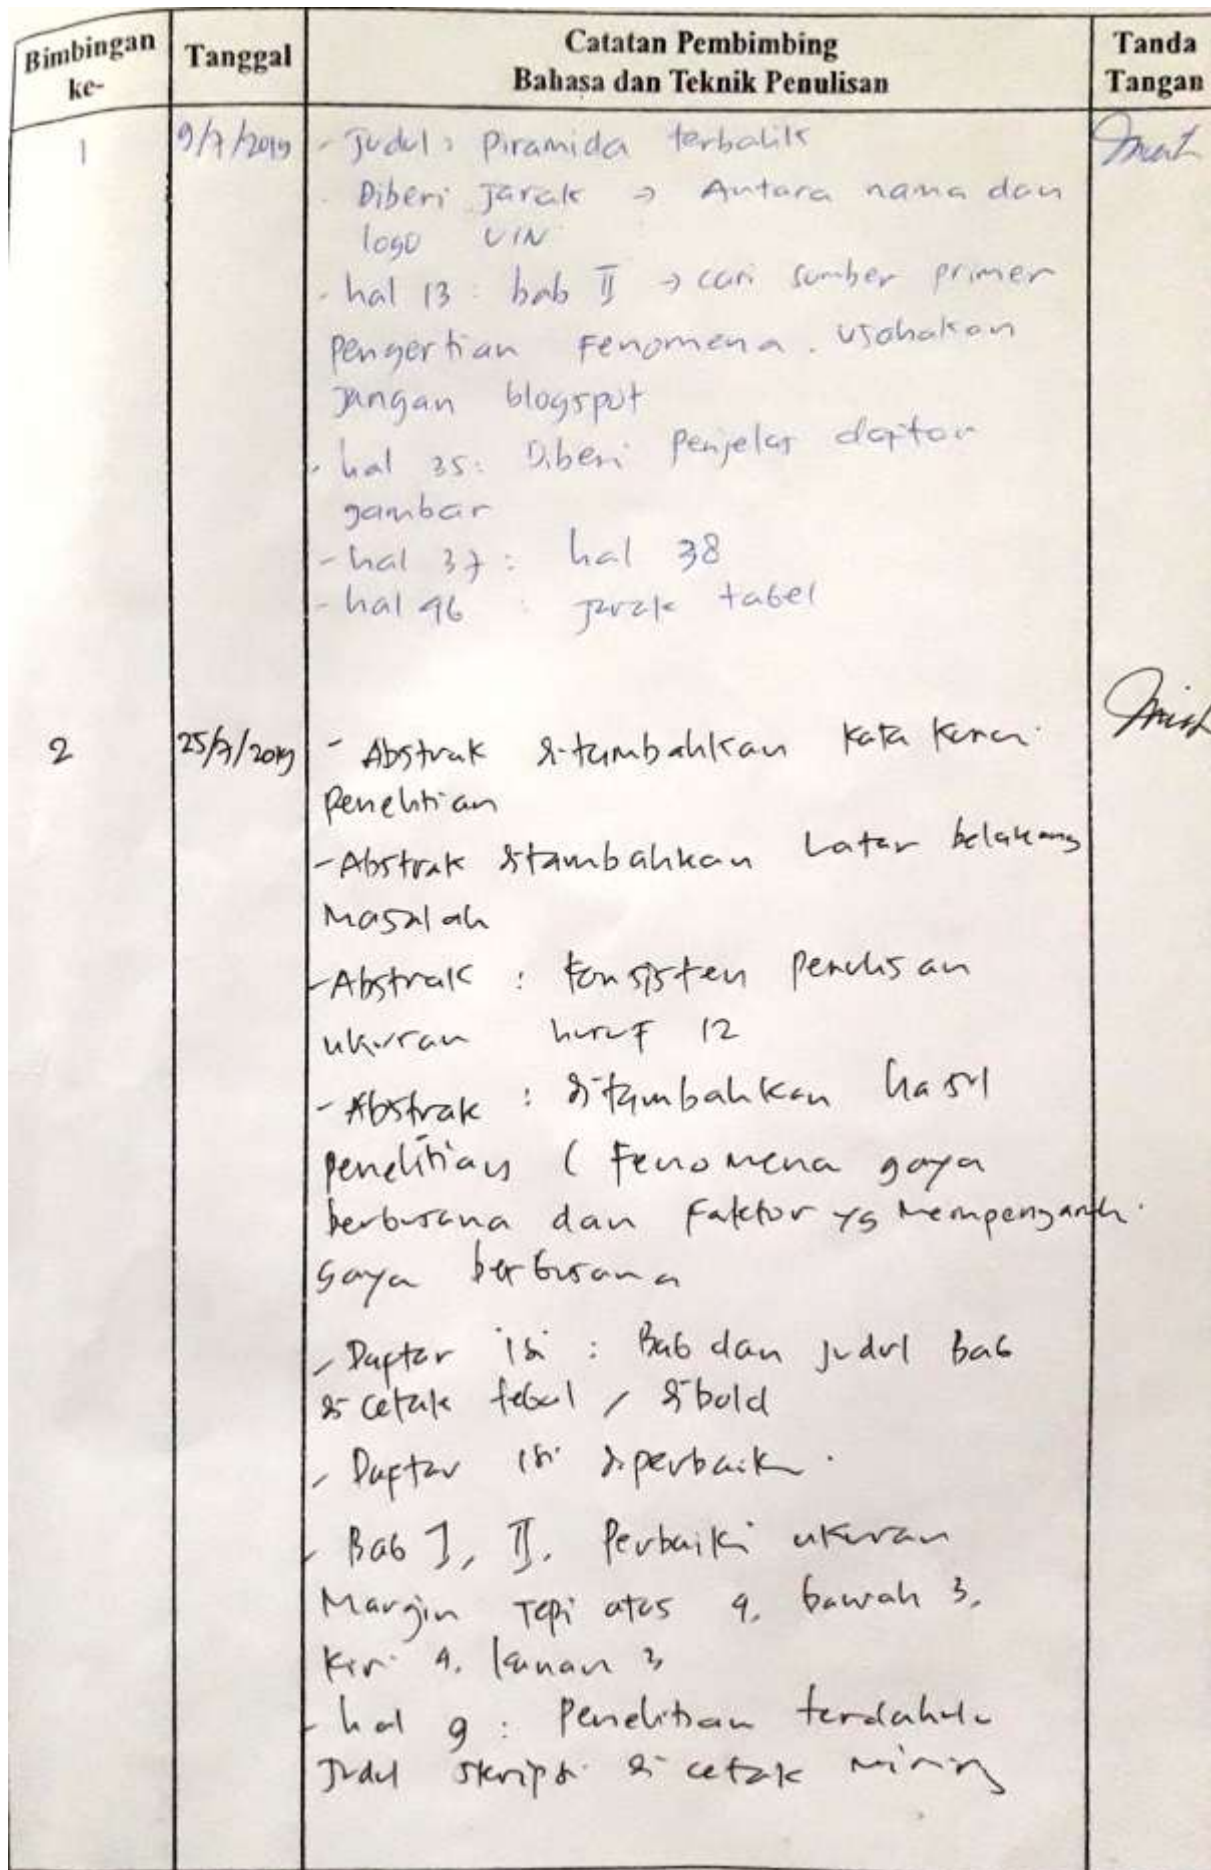 Bimbingan ke-
Tanggal
Catatan Pembimbing
Bahasa dan Teknik Penulisan
Tanda
Tangan
1
9/7/2019
- Judul : Piramida terbalik
- Diberi Jarak → Antara nama dan
logo UIN
- hal 13 : bab II → cari sumber primer
Pengertian Fenomena. Usahakan
jangan blogsput
- hal 35: Diberi Penjelas daftar
gambar
- hal 37 : hal 38
- hal 46 : jarak tabel
2
25/7/2019
- Abstrak ditambahkan kata kunci
Penelitian
- Abstrak ditambahkan Latar belakang
Masalah
- Abstrak : Konsisten penulisan
ukuran huruf 12
- Abstrak : ditambahkan hasil
penelitian ( Fenomena gaya
berbusana dan Faktor yg mempengaruhi
gaya berbusana
- Daftar isi : Bab dan judul Bab
di cetak tebal / dibold
- Daftar isi diperbaiki
- Bab I, II. Perbaiki ukuran
Margin Tepi atas 4. bawah 3.
Kiri 4. kanan 3
- hal 9 : Penelitian terdahulu
Judul skripsi di cetak miring